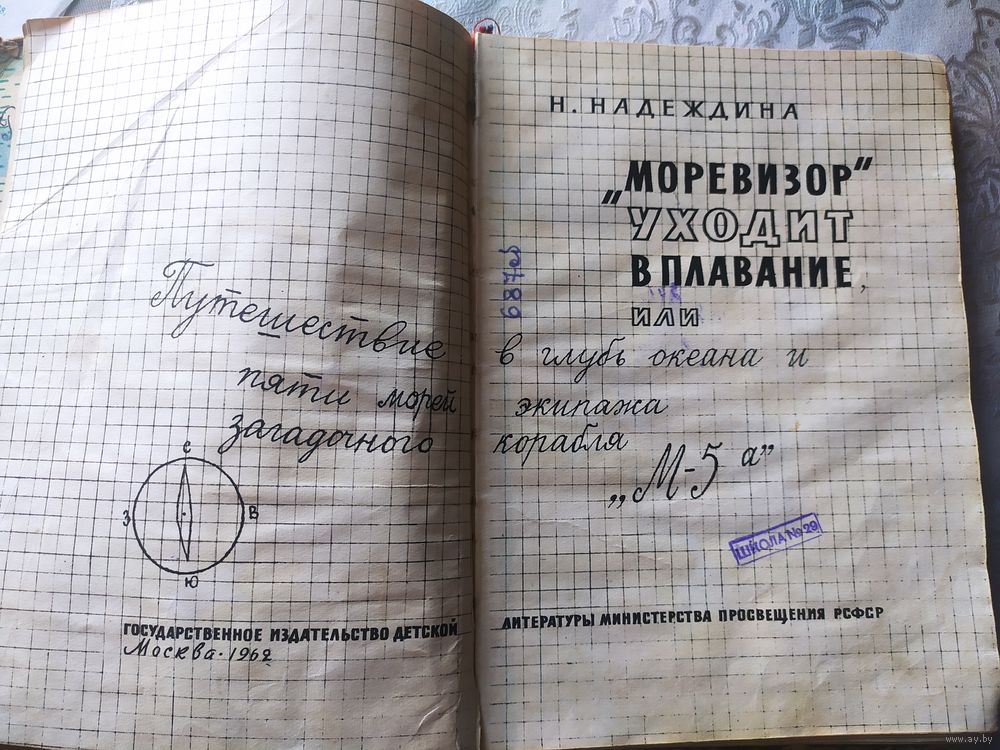 Н. НАДЕЖДИНА
„МОРЕВИЗОР“
УХОДИТ
В ПЛАВАНИЕ,
ИЛИ
Путешествие в глубь океана и
пяти морей экипажа
загадочного корабля
„М-5а”
С
З В
Ю
ШКОЛА № 29
ГОСУДАРСТВЕННОЕ ИЗДАТЕЛЬСТВО ДЕТСКОЙ ЛИТЕРАТУРЫ МИНИСТЕРСТВА ПРОСВЕЩЕНИЯ РСФСР
Москва·1962
www.ay.by